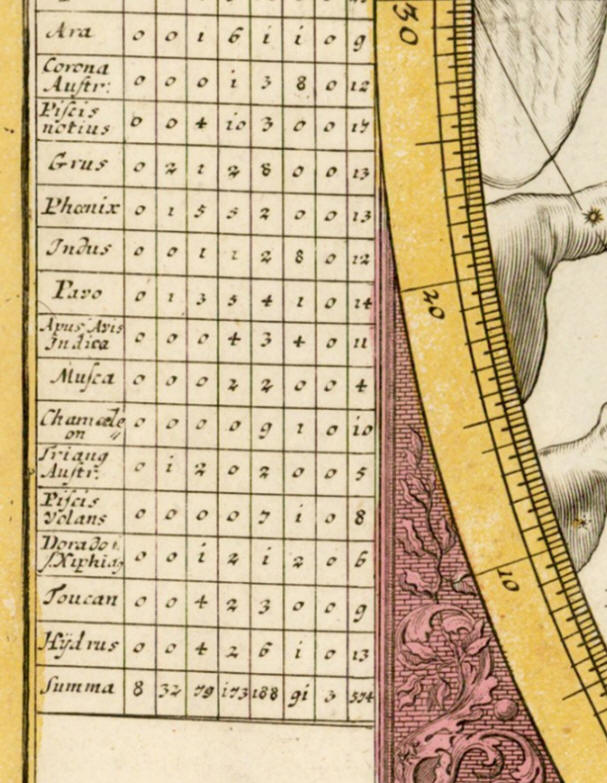 Ara 0 0 1 6 i i 0 9
Corona
Auſtr: 0 0 0 i 3 8 0 12
Piſcis
notius 0 0 4 io 3 0 0 17
Grus 0 2 1 2 8 0 0 13
Phœnix 0 1 5 5 2 0 0 13
Indus 0 0 1 1 2 8 0 12
Pavo 0 1 3 5 4 1 0 14
Apus Avis
Indica 0 0 0 4 3 4 0 11
Muſca 0 0 0 2 2 0 0 4
Chamæle
on 0 0 0 0 9 1 0 10
Triang
Auſtr. 0 i 2 0 2 0 0 5
Piſcis
Volans 0 0 0 0 7 i 0 8
Dorado
ſ. Xiphias 0 0 i 2 i 2 0 6
Toucan 0 0 4 2 3 0 0 9
Hÿdrus 0 0 4 2 6 i 0 13
Summa 8 32 79 173 188 9i 3 574
30
20
10